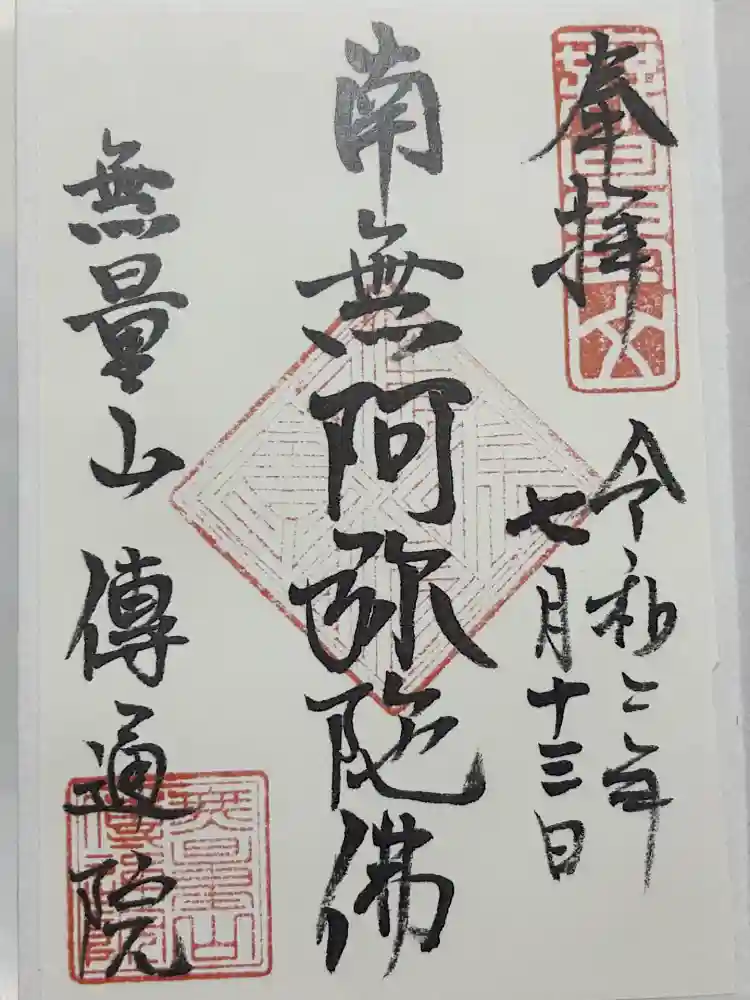 奉拝
令和三年
七月十三日
南無阿弥陀佛
無量山 傳通院